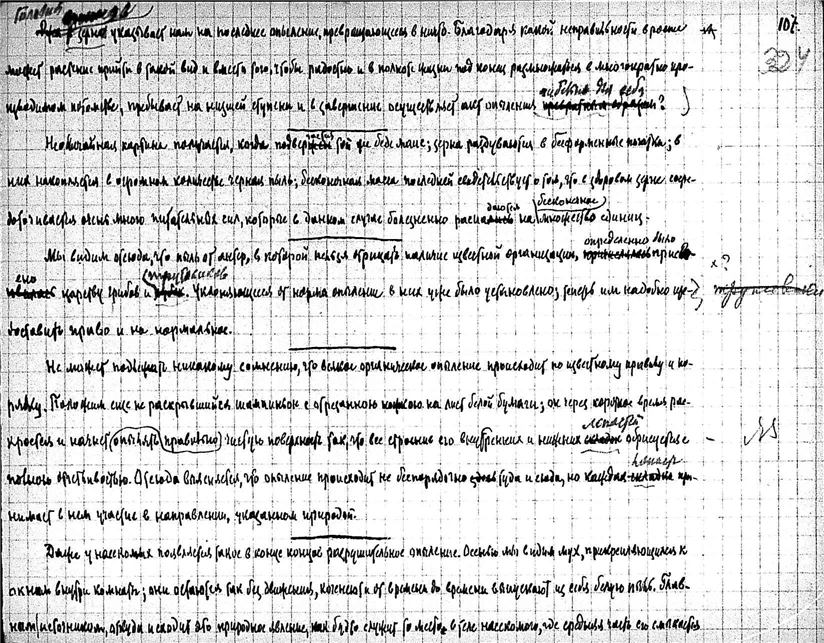 Головня 107.
зерна указывает нам на последнее опыление, превращающееся в ничто. Благодаря какой неправильности в росте
324
может растение прийти в такой вид и вместо того, чтобы радостно и в полноте жизни под конец размножаться в многократно про-
изводимом потомстве, пребывает на низшей ступени и в завершение осуществляет акт опыления для себя?
Необычайная картина получается, когда подвергается той же беде маис; зерна раздуваются в бесформенные початки; в
них накопляется в огромном количестве черная пыль; бесконечная масса последней свидетельствует о том, что в здоровом зерне сосре-
доточивается очень много питательных сил, которые в данном случае болезненно распадаются на бесконечное множество единиц.
Мы видим отсюда, что пыль от антер, в которой нельзя отрицать наличие известной организации, определенно было присво-
ено царству грибов и трутовиков. Уклоняющееся от нормы опыление в них уже было установлено; теперь им надобно пре- х?
доставить право и на нормальное.
Не может подлежать никакому сомнению, что всякое органическое опыление происходит по известному правилу и по-
рядку. Положим еще не раскрывшийся шампиньон с отрезанною ножкою на лист белой бумаги; он через короткое время рас-
кроется и начнет опылять правильно чистую поверхность так, что все строение его внутренних и нижних лопастей обрисуется с
полною отчетливостью. Отсюда выясняется, что опыление происходит не беспорядочно туда и сюда, но при-
нимает в нем участие в направлении, указанном природой.
Даже у насекомых появляется такое в конце концов разрушительное опыление. Осенью мы видим мух, прикрепляющихся к
окнам внутри комнаты; они остаются так без движения, коченеют и от времени до времени выпускают из себя белую пыль. Глав-
ным источником, откуда исходит это природное явление, как будто служит то место в теле насекомого, где средняя часть его смыкается